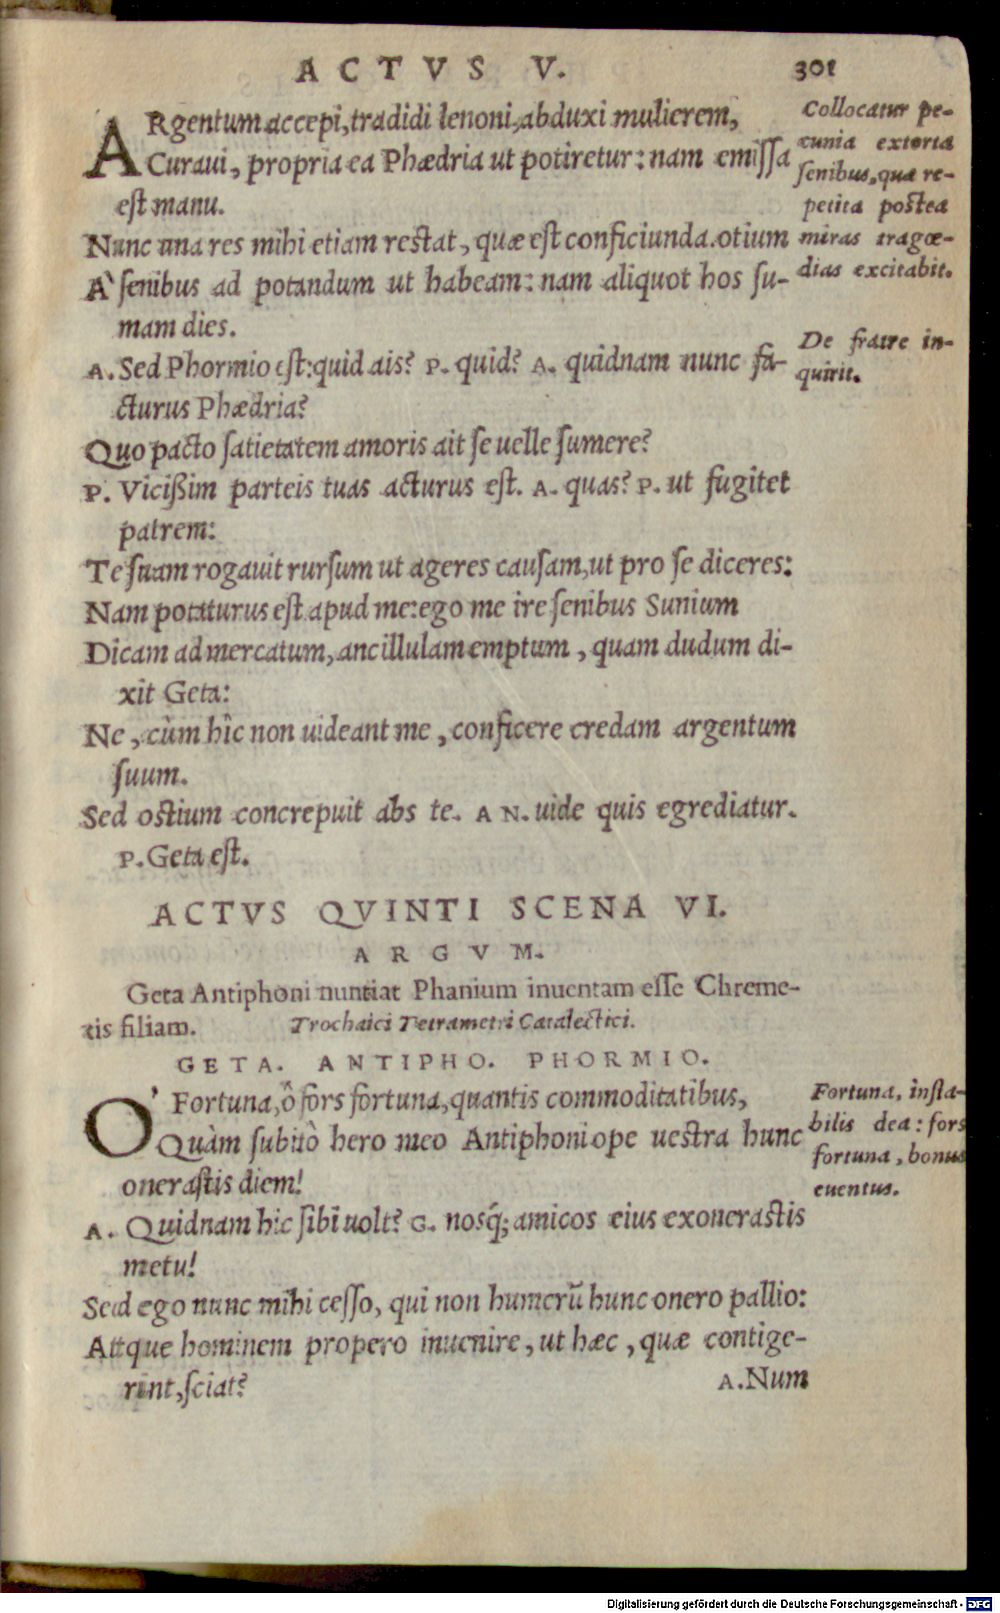 ACTVS V. 301
ARgentum accepi, tradidi lenoni, abduxi mulierem,
Curaui, propria ea Phædria ut potiretur: nam emissa
est manu.
Nunc una res mihi etiam restat, quæ est conficiunda. otium
A' senibus ad potandum ut habeam: nam aliquot hos su-
mam dies.
A. Sed Phormio est: quid ais? P. quid? A. quidnam nunc fa-
cturus Phædria?
Quo pacto satietatem amoris ait se uelle sumere?
P. Vicißim parteis tuas acturus est. A. quas? P. ut fugitet
patrem:
Te suam rogauit rursum ut ageres causam, ut pro se diceres:
Nam potaturus est apud me: ego me ire senibus Sunium
Dicam ad mercatum, ancillulam emptum, quam dudum di-
xit Geta:
Ne, cùm hîc non uideant me, conficere credam argentum
suum.
Sed ostium concrepuit abs te. AN. uide quis egrediatur.
P. Geta est.
Collocatur pe-
cunia extorta
senibus, quæ re-
petita postea
miras tragœ-
dias excitabit.
De fratre in-
quirit.
ACTVS QVINTI SCENA VI.
ARGVM.
Geta Antiphoni nuntiat Phanium inuentam esse Chreme-
tis filiam. Trochaici Tetrametri Catalectici.
GETA. ANTIPHO. PHORMIO.
O' Fortuna, ô fors fortuna, quantis commoditatibus,
Quàm subitò hero meo Antiphoni ope uestra hunc
onerastis diem!
A. Quidnam hic sibi uolt? G. nosq́; amicos eius exonerastis
metu!
Sed ego nunc mihi cesso, qui non humerū hunc onero pallio:
Atque hominem propero inuenire, ut hæc, quæ contige-
rint, sciat?
A. Num
Fortuna, insta-
bilis dea: fors
fortuna, bonus
euentus.
Digitalisierung gefördert durch die Deutsche Forschungsgemeinschaft - DFG